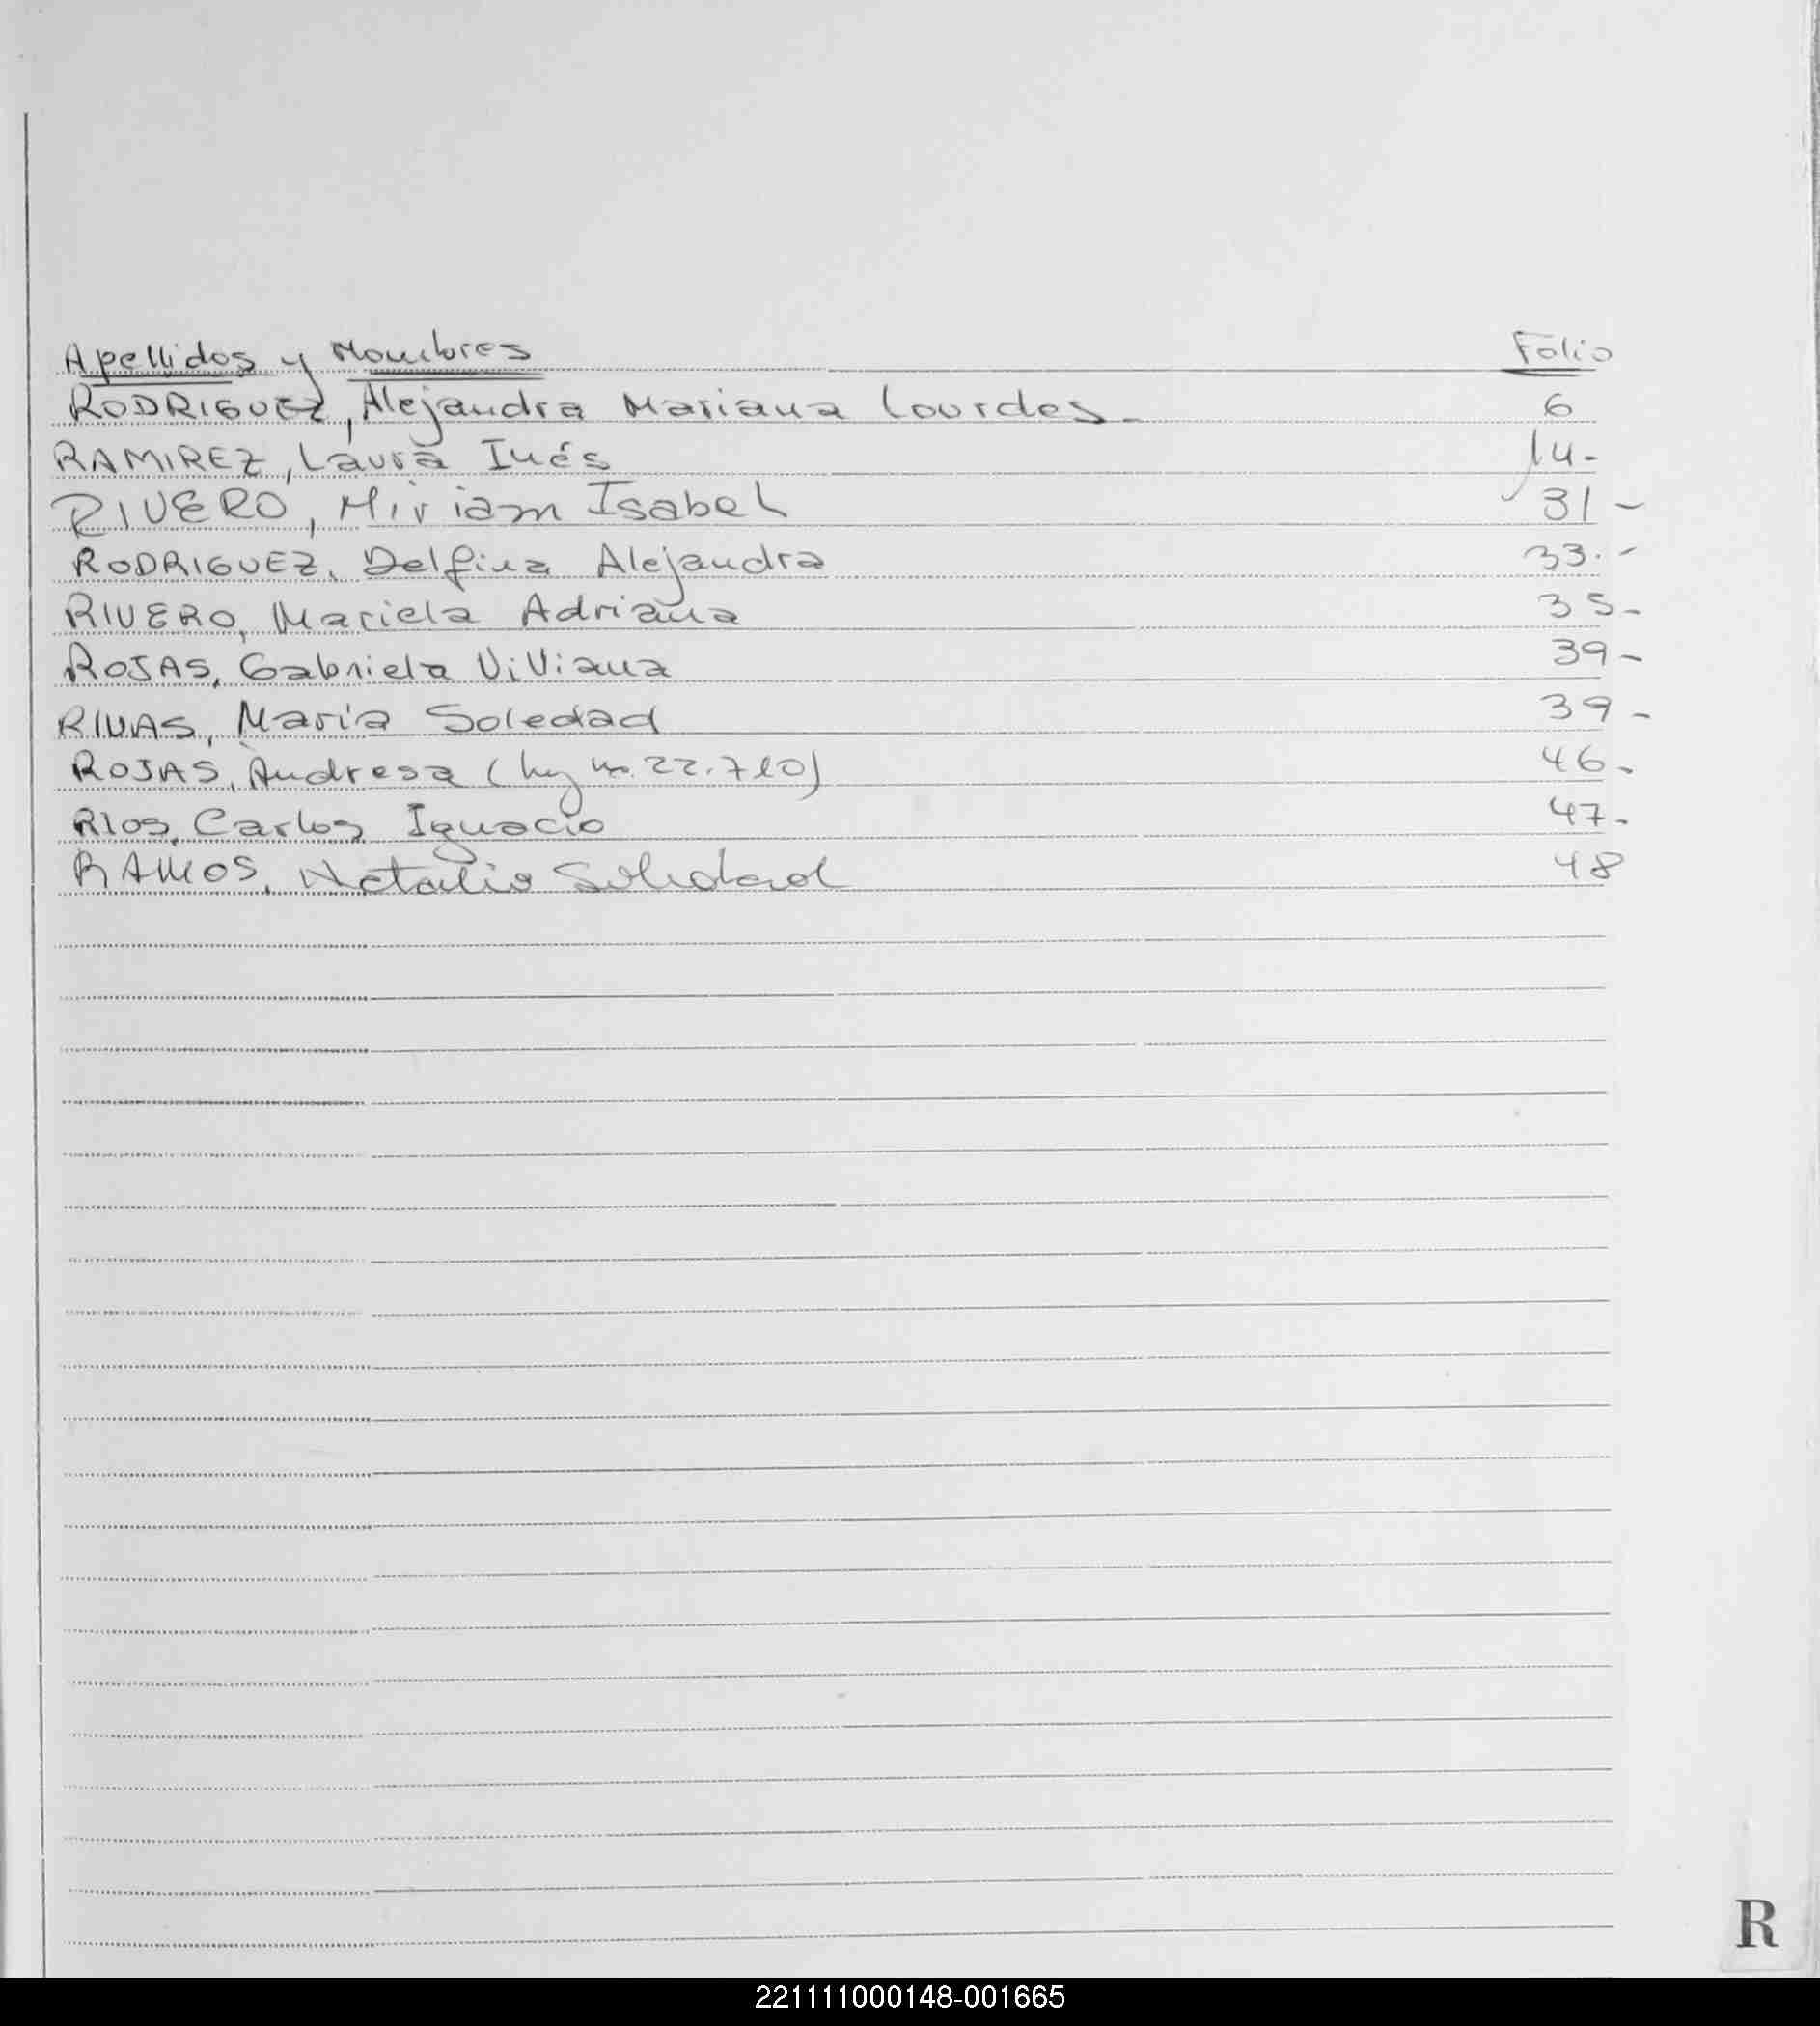 Apellidos y Nombres Folio
RODRIGUEZ, Alejandra Mariana Lourdes- 6
RAMIREZ, Laura Inés 14-
RIVERO, Miriam Isabel 31-
RODRIGUEZ, Delfina Alejandra 33.-
RIVERO, Mariela Adriana 35-
ROJAS, Gabriela Viviana 39-
RIVAS, María Soledad 39-
ROJAS, Andresa (ley no. 22.710) 46-
RIOS, Carlos Ignacio 47-
RAMOS, Natalia Soledad 48
R
221111000148-001665